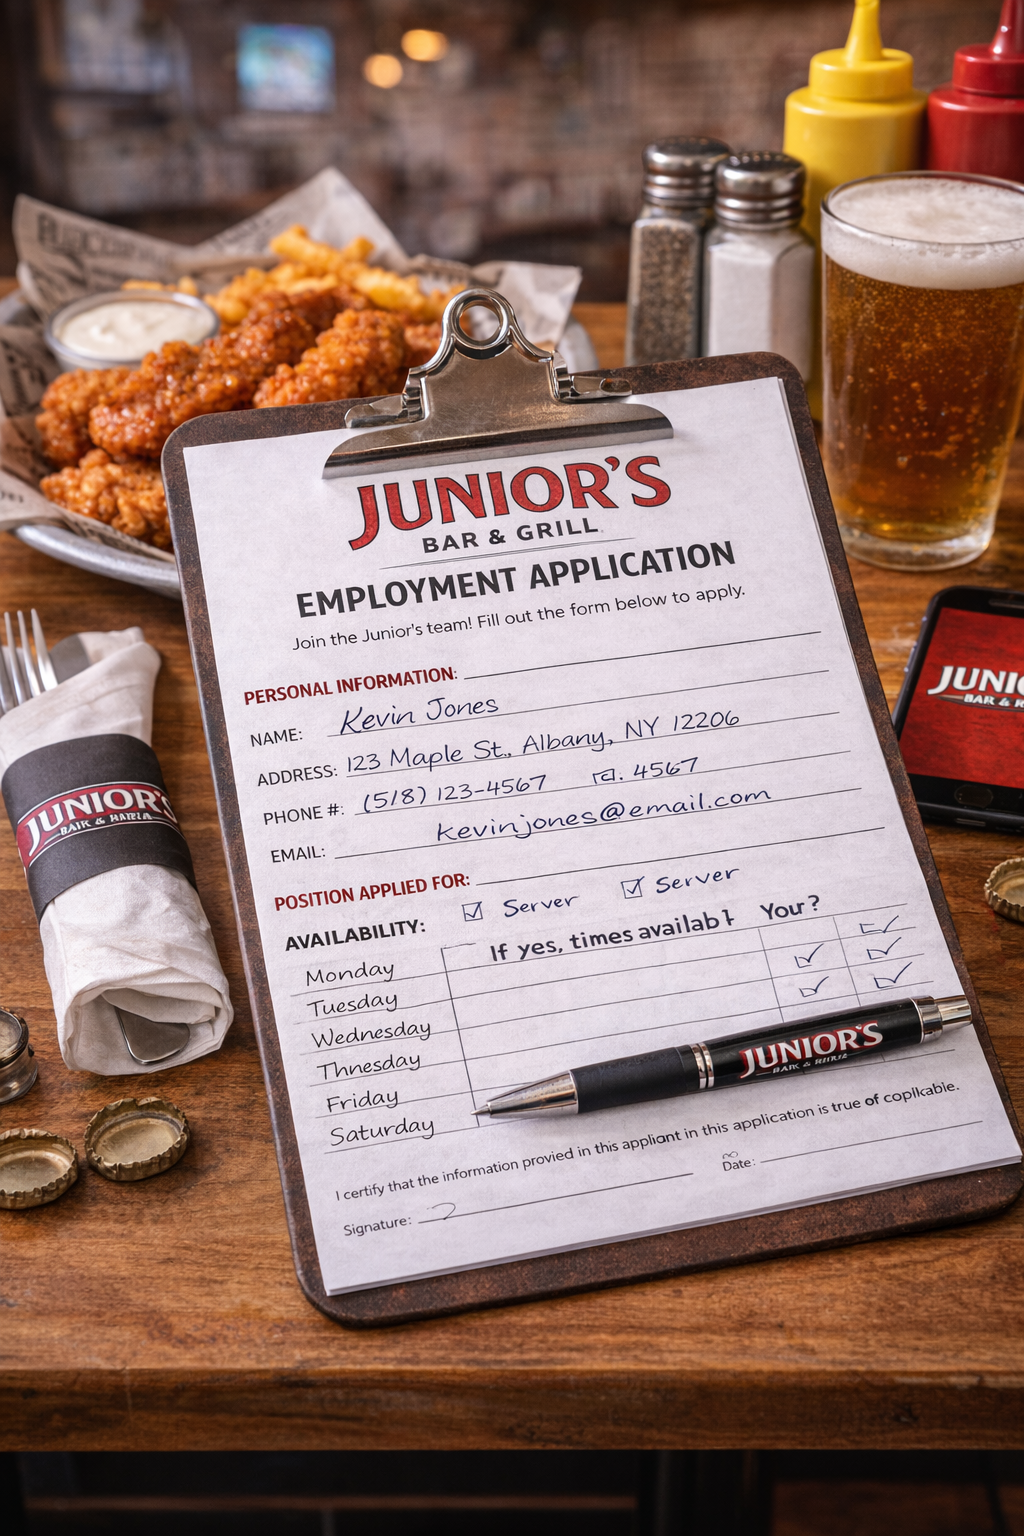 JUNIOR'S
BAR & GRILL
EMPLOYMENT APPLICATION
Join the Junior's team! Fill out the form below to apply.
PERSONAL INFORMATION:
NAME: Kevin Jones
ADDRESS: 123 Maple St., Albany, NY 12206
PHONE #: (518) 123-4567 4567
EMAIL: kevinjones@email.com
POSITION APPLIED FOR:
☑ Server ☑ Server
AVAILABILITY:
If yes, times availab Your?
Monday
Tuesday
Wednesday
Thnesday
Friday
Saturday
I certify that the information provied in this appliant in this application is true of coplkable.
Signature:
Date:
JUNIOR'S
JUNIOR'S
JUNIO
BAR &